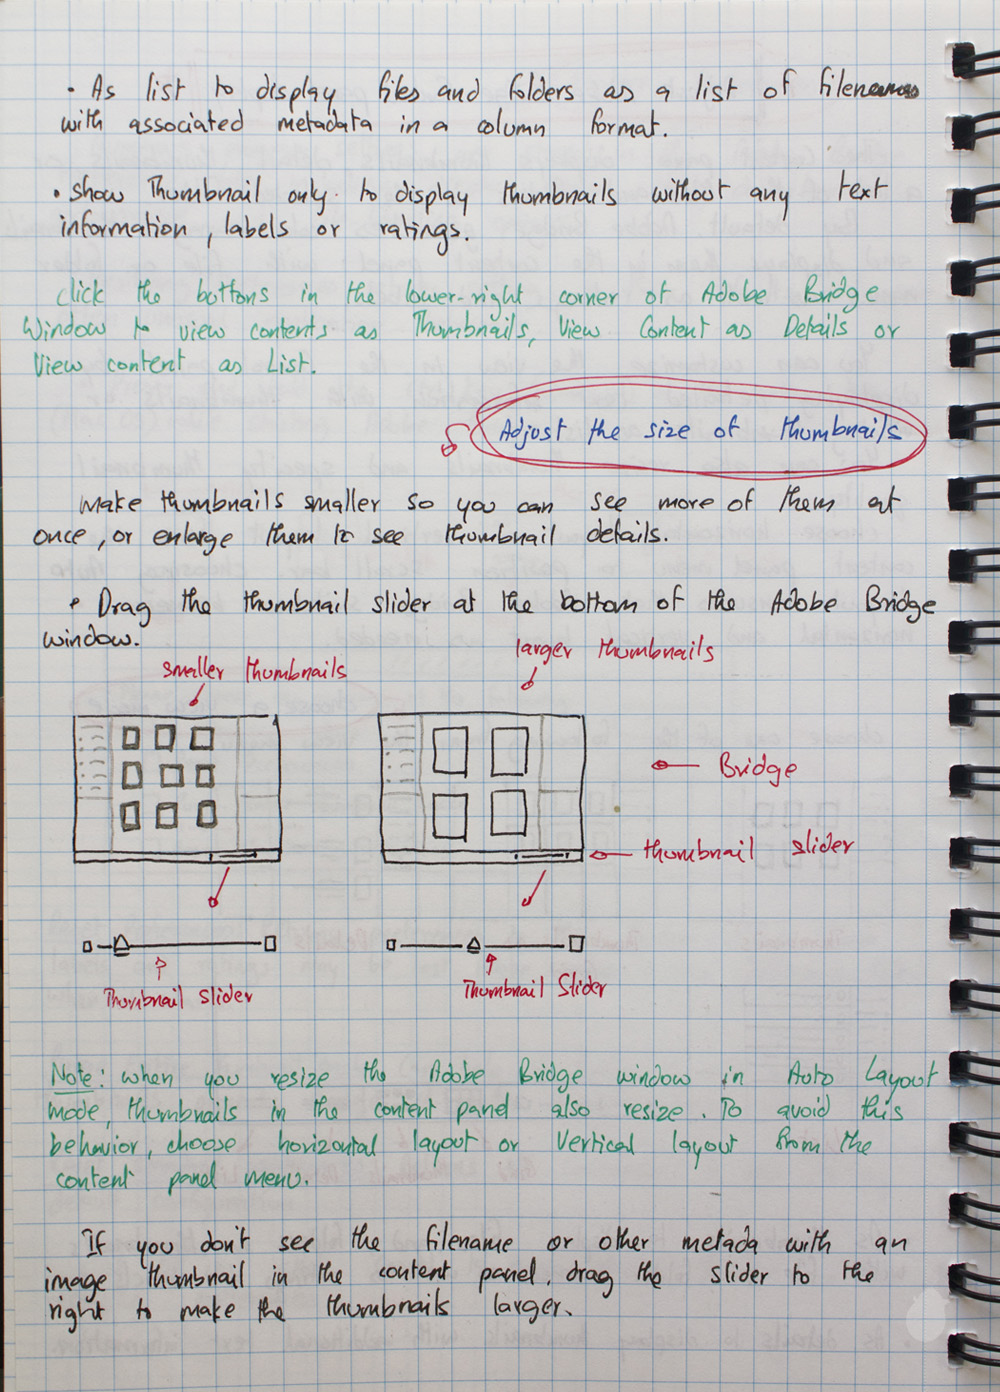 • As list to display files and folders as a list of filenames
with associated metadata in a column format.
• show Thumbnail only. to display thumbnails without any text
information, labels or ratings.
click the buttons in the lower-right corner of Adobe Bridge
Window to view contents as Thumbnails, View Content as Details or
View content as List.
Adjust the size of thumbnails
Make thumbnails smaller so you can see more of them at
once, or enlarge them to see thumbnail details.
• Drag the thumbnail slider at the bottom of the Adobe Bridge
window.
smaller thumbnails
larger thumbnails
Bridge
thumbnail slider
Thumbnail slider
Thumbnail Slider
Note: when you resize the Adobe Bridge window in Auto Layout
mode, thumbnails in the content panel also resize. To avoid this
behavior, choose horizontal layout or Vertical layout from the
content panel menu.
If you don't see the filename or other metada with an
image thumbnail in the content panel, drag the slider to the
right to make the thumbnails larger.